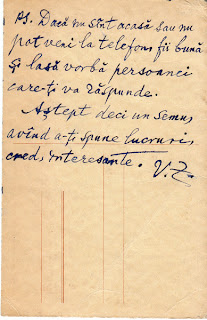 PS. Dacă nu sînt acasă sau nu
pot veni la telefon, fii bună
și lasă vorbă persoanei
care-ți va răspunde.
Aștept deci un semn,
avînd a-ți spune lucruri,
cred, interesante. V.Z.